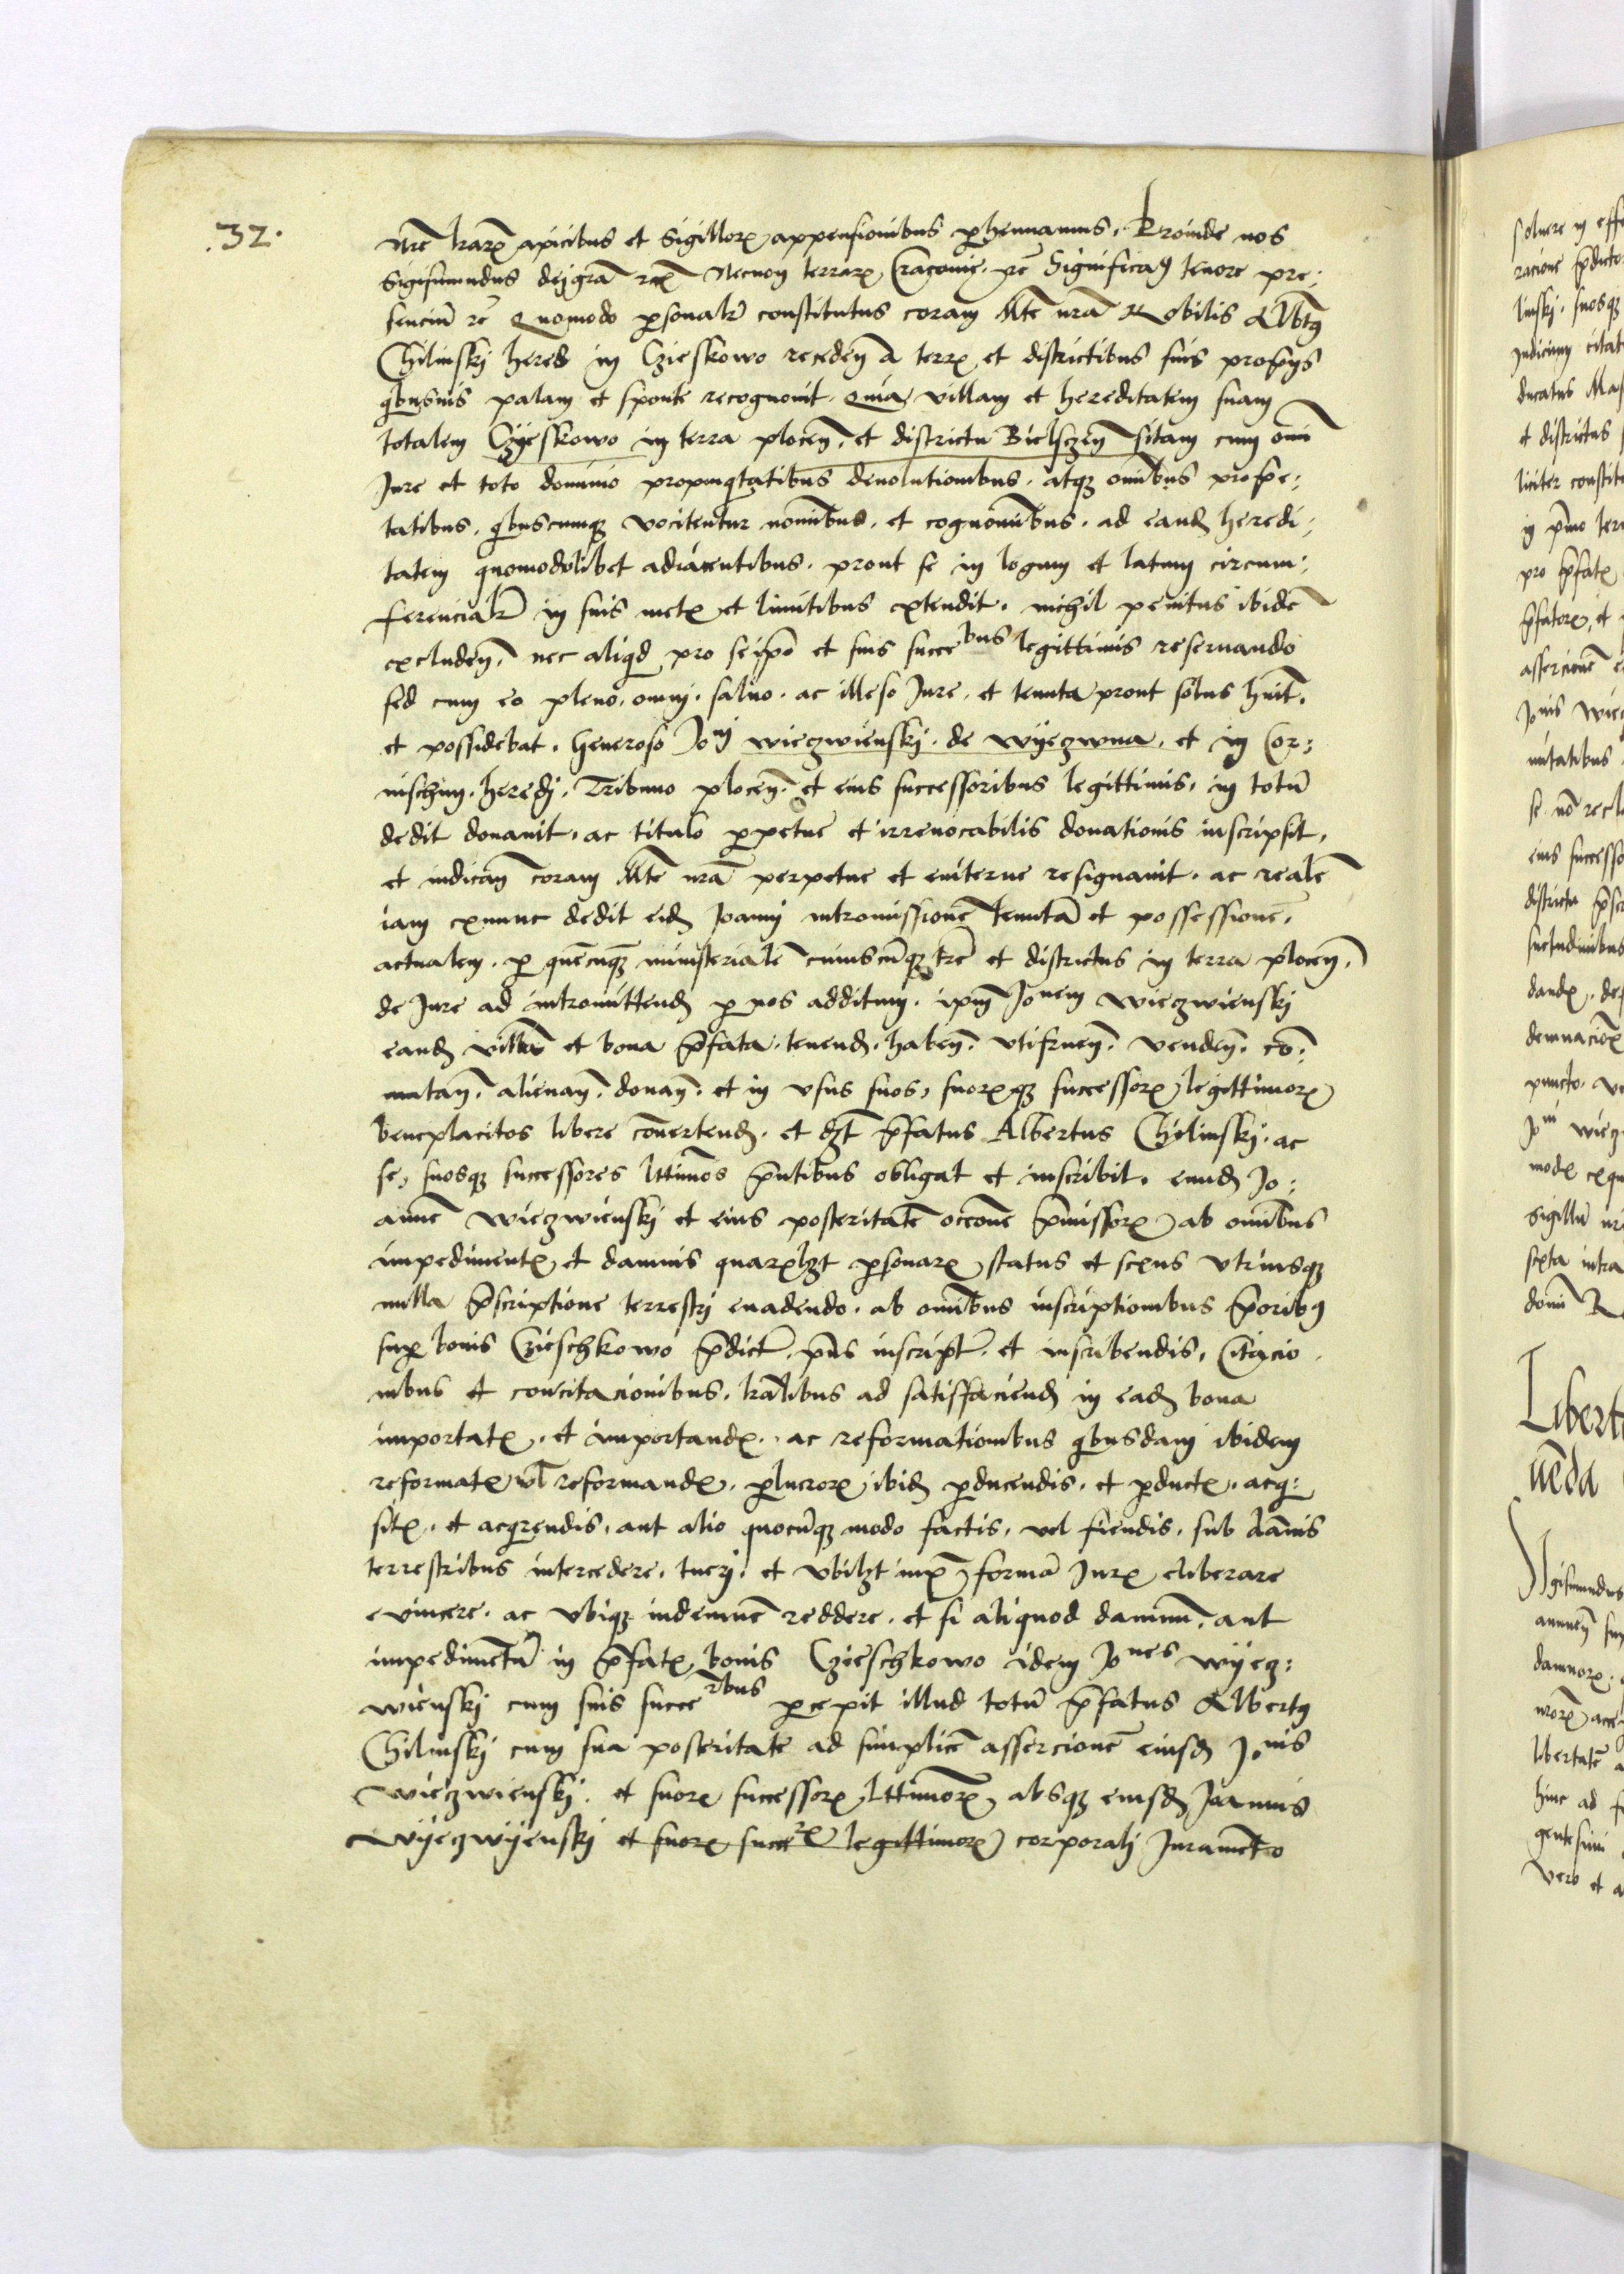 .32.
nre̅ lrarꝝ apicibus et Sigillorꝝ appensionibus ꝑhennamus. Proinde nos
Sigismundus dei gra̅ rex Necnon terrarꝝ Cracovie. rc̅ Significaꝰ tenore pre:
senciu̅ rc̅ Quomodo ꝑsonalr̅ constitutus coram Mte̅ nra̅ Nobilis Albtꝰ
Chilinskj heres in Czieskowo receden̅ a terrꝭ et districtibus suis propijs
qbusvis palam et sponte recognovit. Quia villam et hereditatem suam
totalem Czÿeskowo in terra plocen̅. et districtu Bielsczen̅ sitam cum omi̅
Jure et toto dominio propinqtatibus devolutionibus. atqꝫ omi̅bus prope:
tatibus. qbuscumqꝫ vocitentur nomi̅bus. et cognomi̅bus. ad eand̅ heredi:
tatem quomodolibet adiacentibus. prout se in logum et latum circum:
ferencialr̅ in suis metꝭ et limitibus extendit. nichil penitus ibide̅
excluden̅. nec aliqd pro seipo̅ et suis succe bus legittimis reservando
sed cum eo pleno. omnj. salvo. ac illeso Jure. et tenuta prout solus huit̅.
et possidebat. Generoso Jonj wieczwienskj. de wÿeczwna. et in Cor:
nischin. heredj. Tribuno plocen̅. et eius successoribus legittimis. in totu̅
dedit donavit. ac titulo ꝑpetue et irrevocabilis donationis inscripsit.
et indican̅ coram Mte̅ nra̅ perpetue et eviterne resignavit. ac reale̅
iam exnunc dedit eid̅ Joannj intromissione̅ tenuta̅ et possessione̅.
actualem. ꝑ que̅cu̅qꝫ ministeriale̅ cuiuscu̅qꝫ tre̅ et districtus in terra plocen̅.
de Jure ad intromittend̅ ꝑ nos additum. ipm̅ Jonem wieczwienskj
eand̅ villa̅ et bona p̅fata. tenend̅. haben̅. utifruen̅. venden̅. co̅:
mutan̅. alienan̅. donan̅. et in usus suos, suorꝝqꝫ successorꝝ legittimorꝝ
beneplacitos libere co̅vertend̅. et dꝫt p̅fatus Albertus Chÿlinskj. ac
se, suosqꝫ successores lttimos p̅ntibus obligat et inscribit. eund̅ Jo:
anne̅ wieczwienskj et eius posteritate̅ occo̅ne p̅missorꝝ ab omi̅bus
impedimentꝭ et damnis quarꝝlꝫt ꝑsonarꝝ status et sexus utriusqꝫ
nulla p̅scriptione terrestrj evadendo. ab omi̅bus inscriptionibus p̅oribꝰ
suꝑ bonis Czieschkowo p̅dictꝭ. pn̅s inscriptꝭ. et inscribendis. Citacio
nibus et concitacionibus. lra̅libus ad satisfaciend̅ in ead̅ bona
importatꝭ. et importandꝭ. ac reformationibus qbusdam ibidem
reformatꝭ vl̅ reformandꝭ. ꝑlucrorꝝ ibid̅ ꝑducendis. et ꝑductꝭ. acq:
sitꝭ. et acqrendis. aut alio quocu̅qꝫ modo factis. vel fiendis. sub da̅nis
terrestribus intercedere. tuerj. et ubilꝫt iuxꝰ forma̅ Jurꝭ eliberare
evincere. ac ubiqꝫ indemne̅ reddere. et si aliquod damnu̅. aut
impedime̅tu̅ in p̅fatꝭ bonis Czieschkowo idem Jones wÿecz:
wienskj cum suis succe ribus ꝑcepit illud totu̅ p̅fatus Albertꝰ
Chilinskj cum sua posteritate ad simplice̅ assercione̅ eiusd̅ Jonis
wieczwienskj. et suorꝝ successorꝝ lttimorꝝ absqꝫ eiusd̅ Joannis
wÿeczwÿenskj et suorꝝ succe rꝝ legittimorꝝ corporalj Jurame̅to